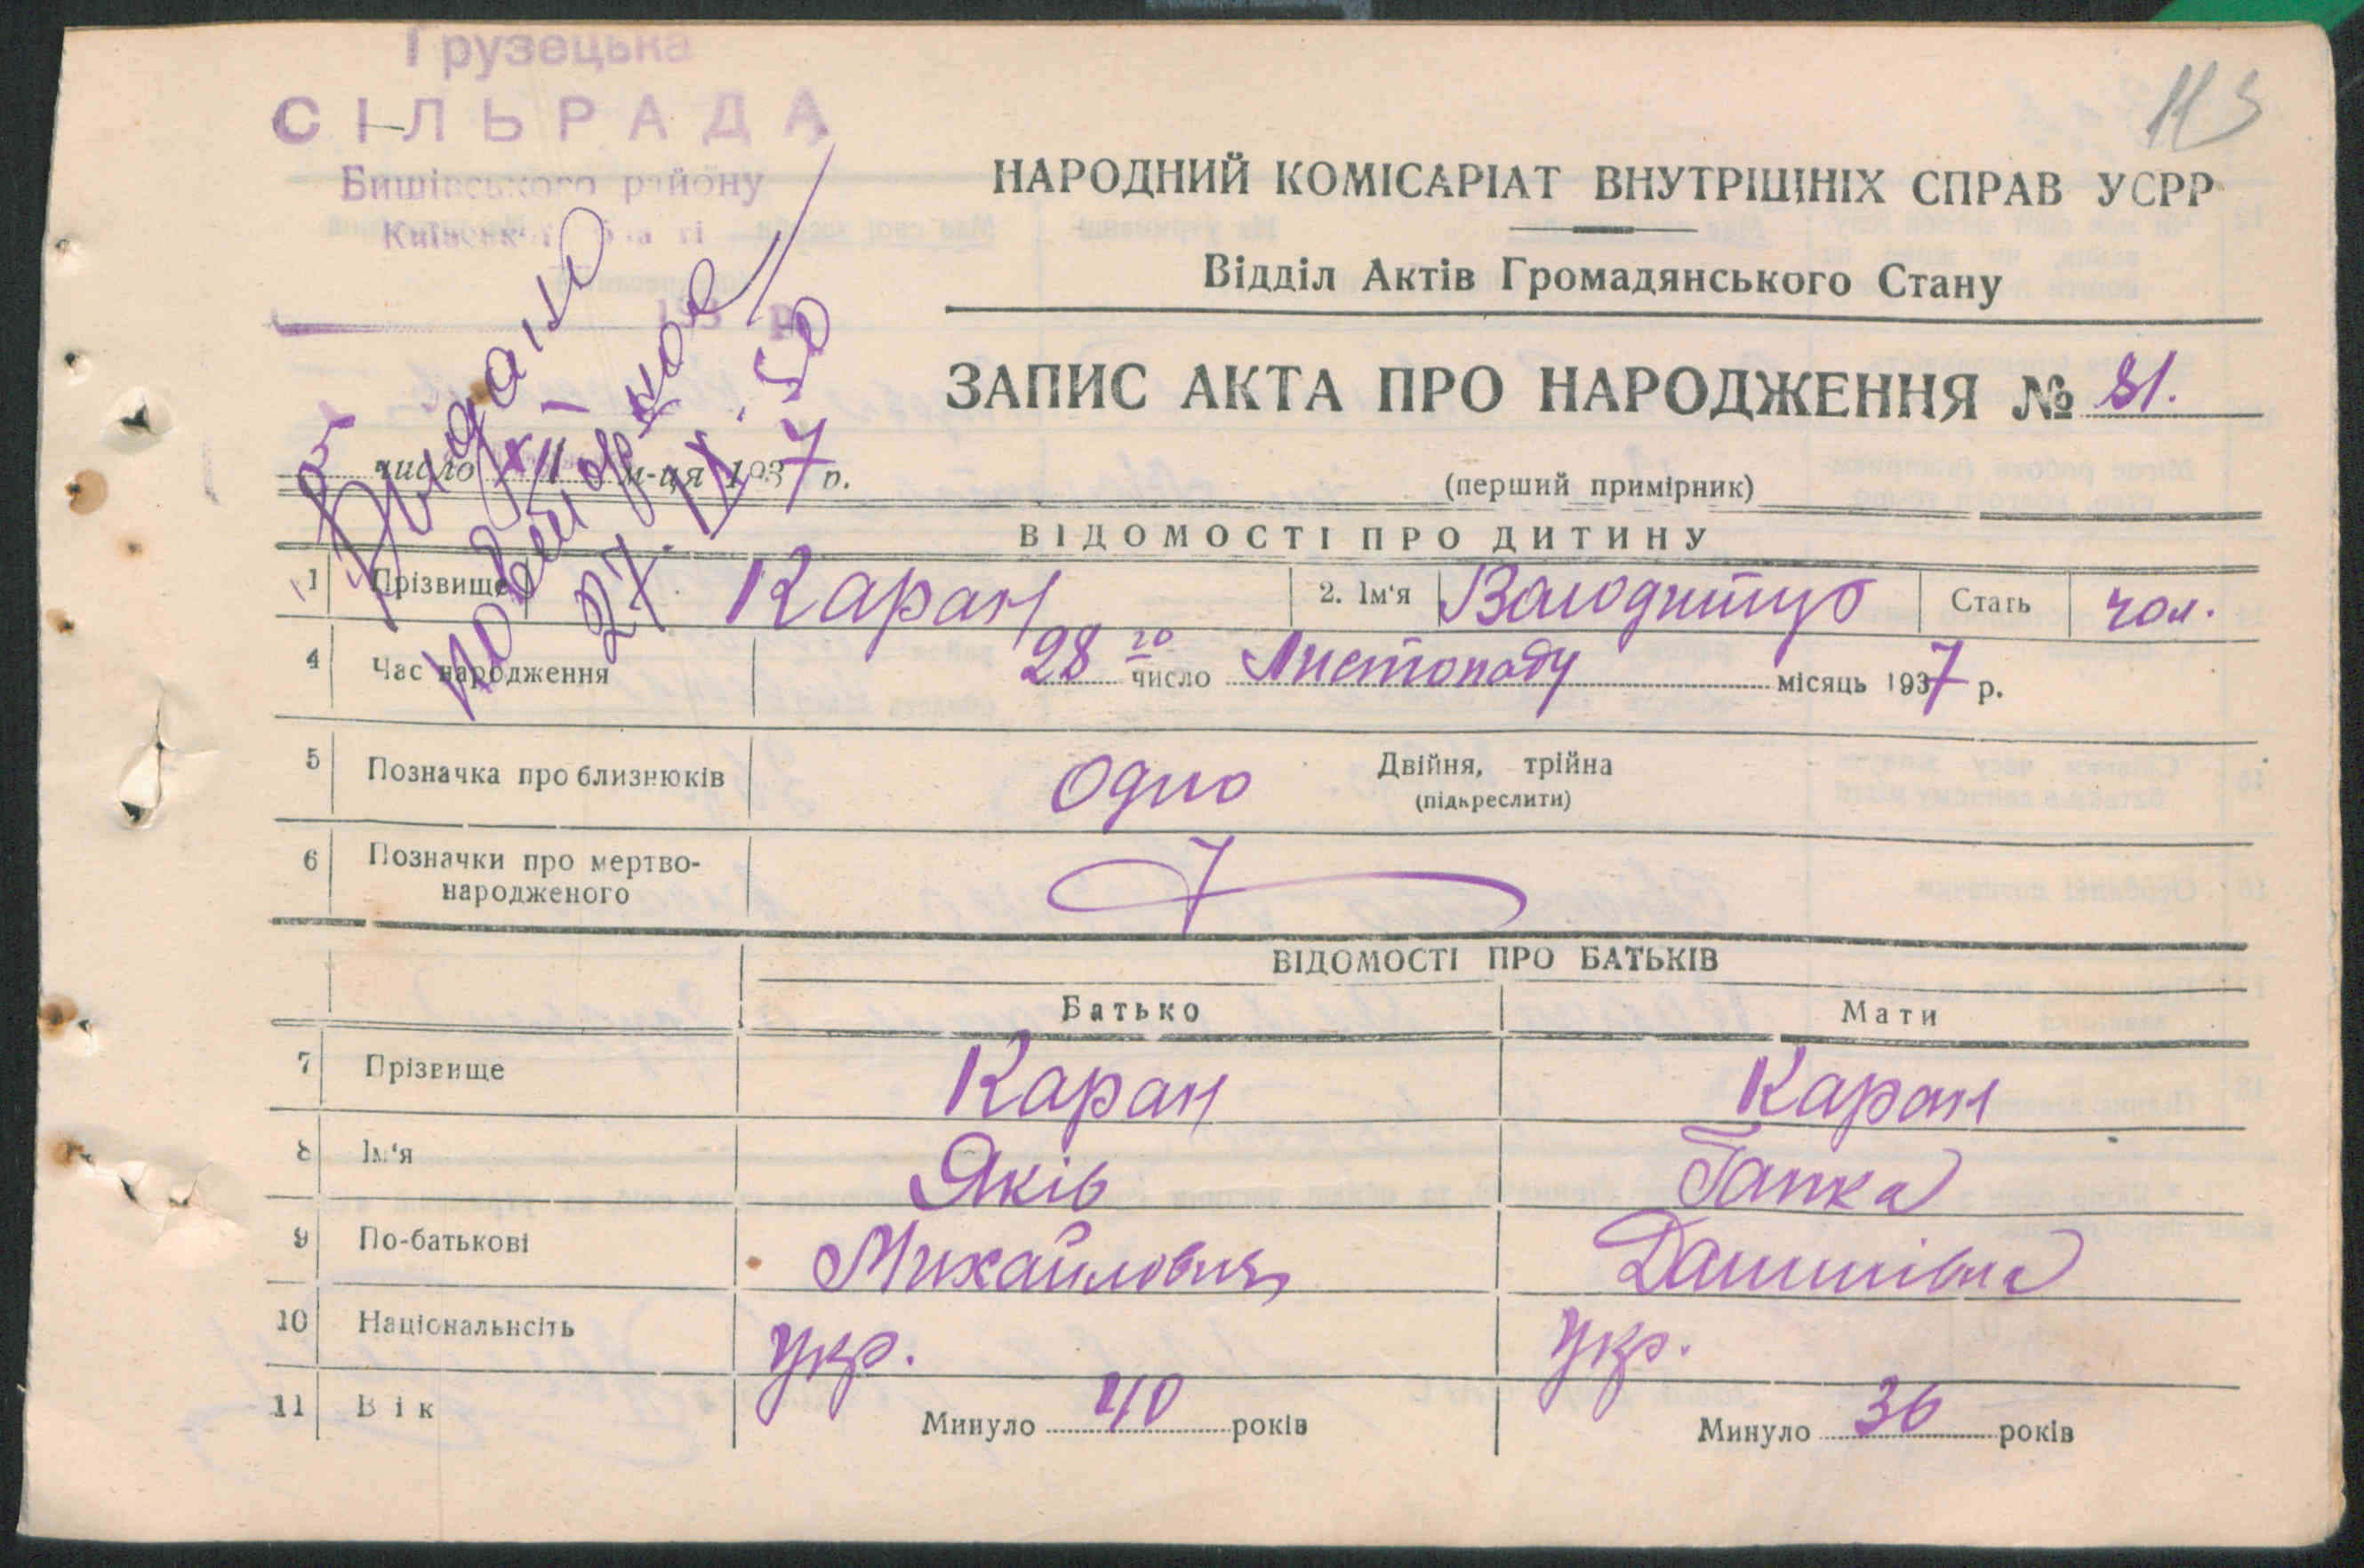 Грузецька
СІЛЬРАДА
Бишівського району
Київської області
193 р.
113
НАРОДНИЙ КОМІСАРІАТ ВНУТРІШНІХ СПРАВ УСРР
Відділ Актів Громадянського Стану
ЗАПИС АКТА ПРО НАРОДЖЕННЯ № 81.
5 число XII м-ця 1937 р.
(перший примірник)
Видано
повторное
27. IX. 50
ВІДОМОСТІ ПРО ДИТИНУ
1 Прізвище Каран 2. Ім'я Володимир Стать чол.
4 Час народження 28 го число Листопаду місяць 1937 р.
5 Позначка про близнюків Одно Двійня, трійна
(підкреслити)
6 Позначки про мертво-
народженого
ВІДОМОСТІ ПРО БАТЬКІВ
Батько Мати
7 Прізвище Каран Каран
8 Ім'я Яків Гапка
9 По-батькові Михайлович Данилівна
10 Національність Укр. Укр.
11 Вік Минуло 40 років Минуло 36 років